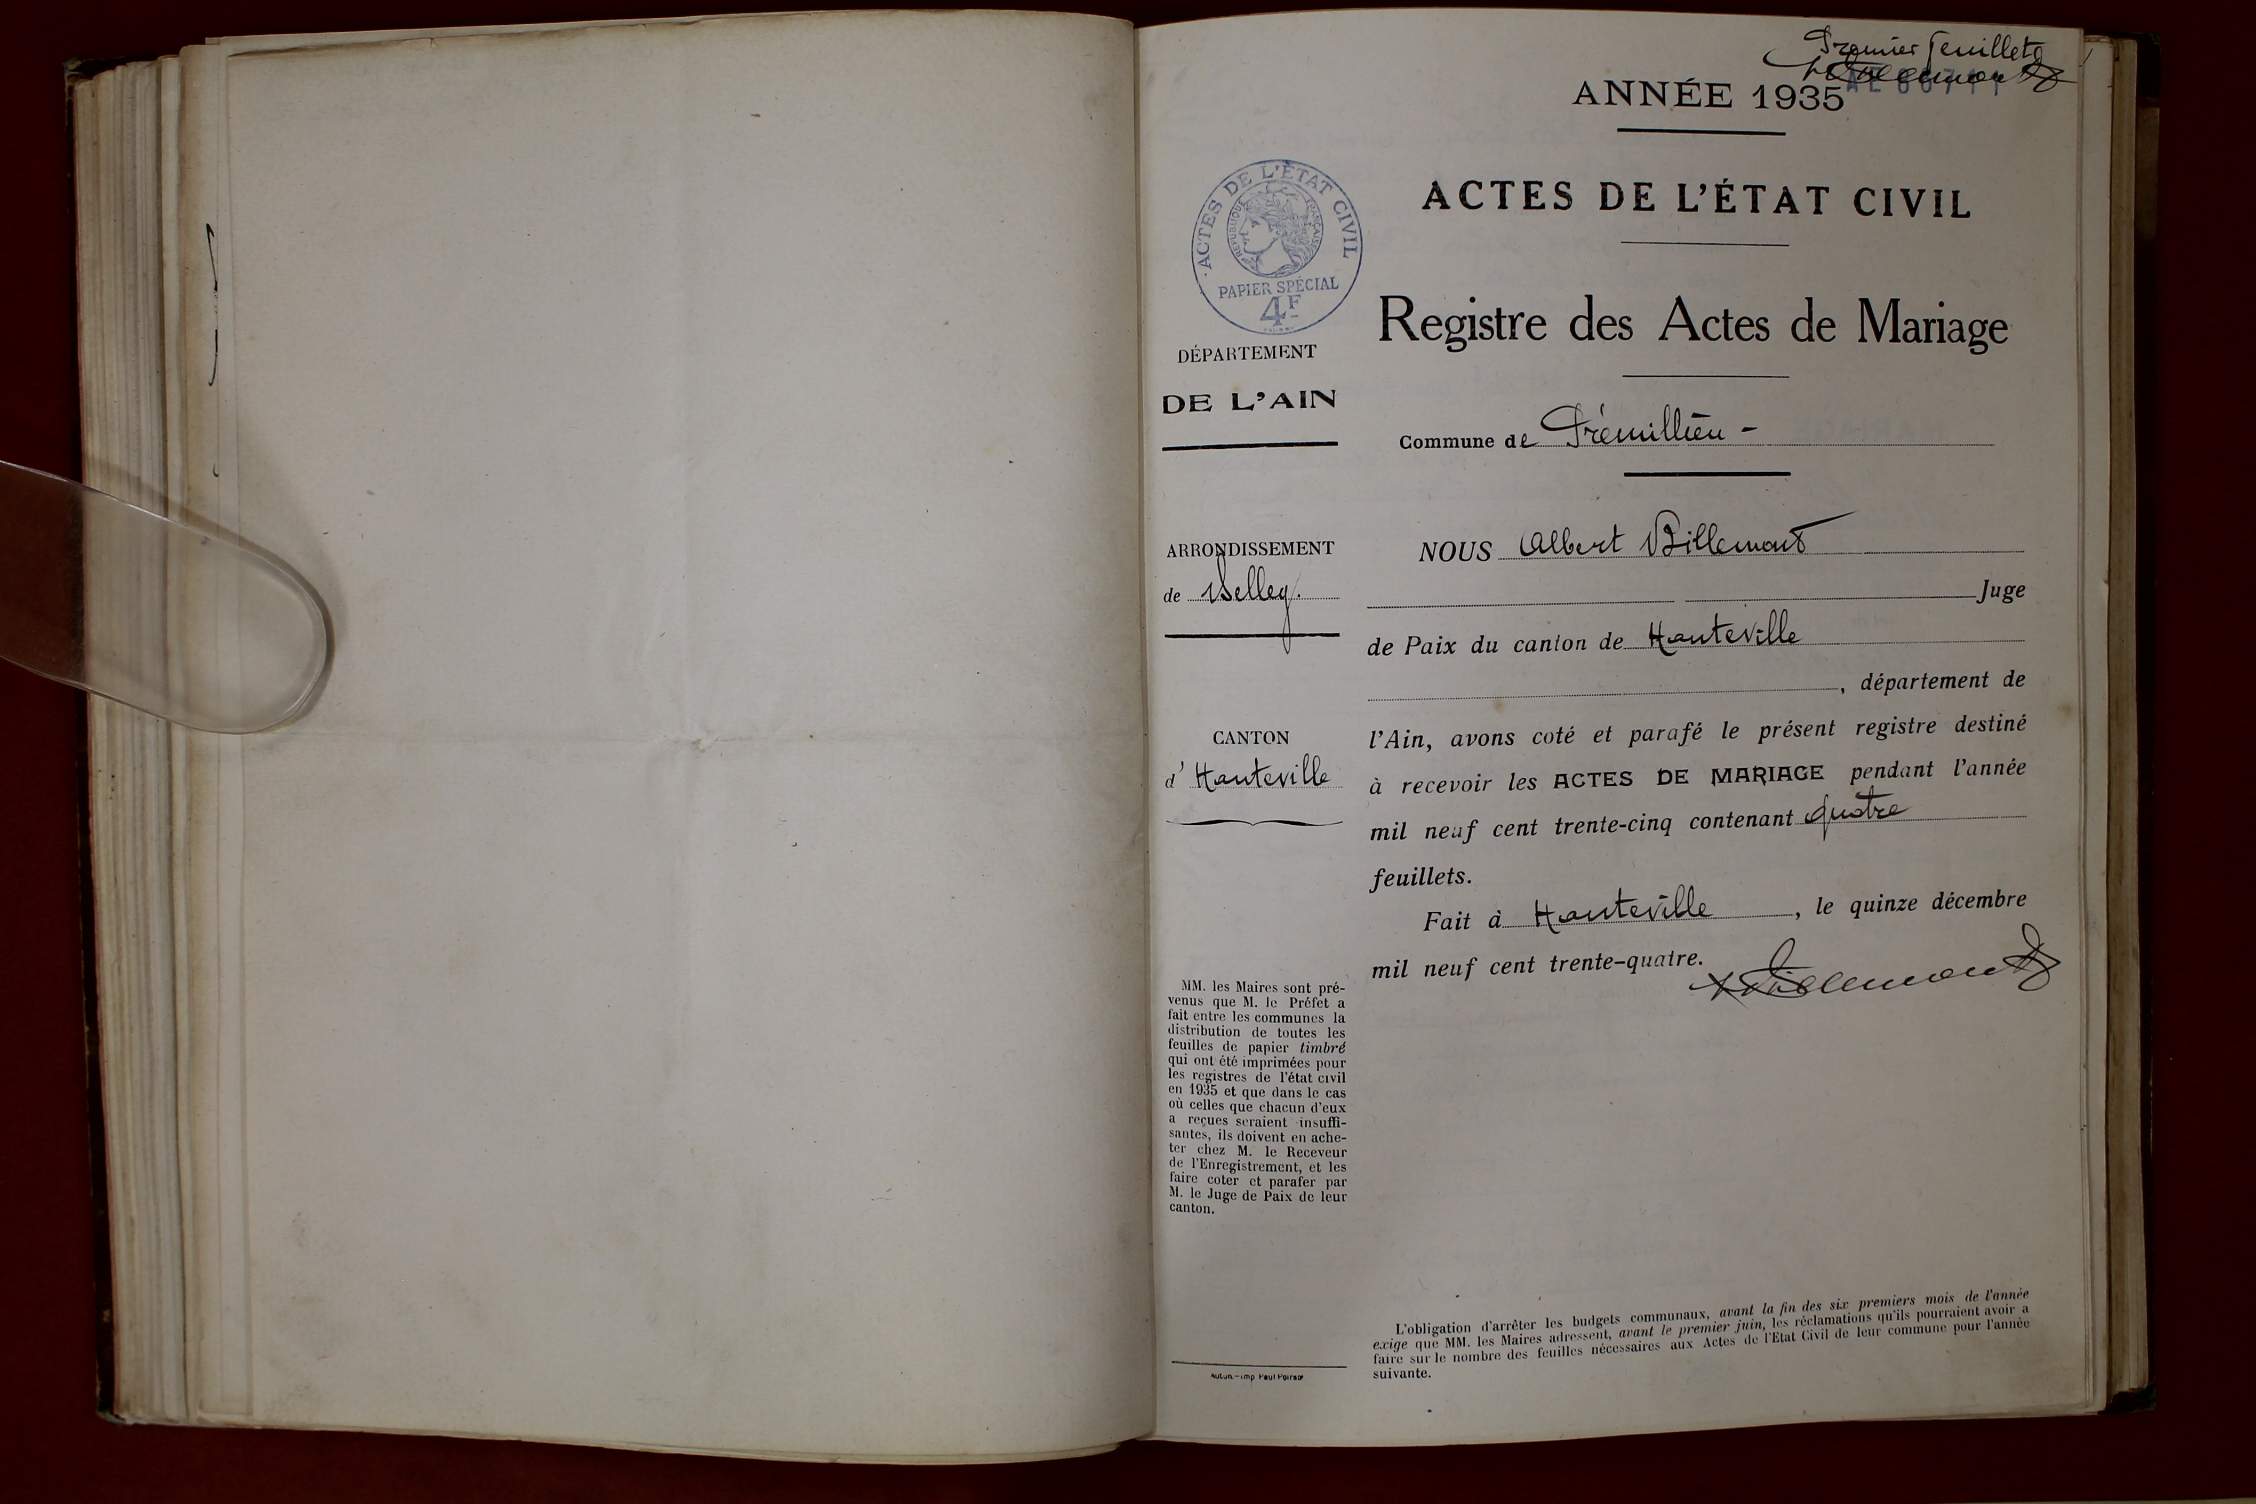 Premier feuillet
ANNÉE 1935
ACTES DE L'ÉTAT CIVIL
ACTES DE L'ÉTAT CIVIL
RÉPUBLIQUE FRANÇAISE
PAPIER SPÉCIAL
4F
Registre des Actes de Mariage
DÉPARTEMENT
DE L'AIN
Commune de Prémillieu -
ARRONDISSEMENT
de Belley.
CANTON
d' Hauteville
NOUS Albert Billemont
Juge
de Paix du canton de Hauteville
, département de
l'Ain, avons coté et parafé le présent registre destiné
à recevoir les ACTES DE MARIAGE pendant l'année
mil neuf cent trente-cinq contenant quatre
feuillets.
Fait à Hauteville, le quinze décembre
mil neuf cent trente-quatre.
Billemont
MM. les Maires sont pré-
venus que M. le Préfet a
fait entre les communes la
distribution de toutes les
feuilles de papier timbré
qui ont été imprimées pour
les registres de l'état civil
en 1935 et que dans le cas
où celles que chacun d'eux
a reçues seraient insuffi-
santes, ils doivent en ache-
ter chez M. le Receveur
de l'Enregistrement, et les
faire coter et parafer par
M. le Juge de Paix de leur
canton.
Autun.-imp Paul Poirson
L'obligation d'arrêter les budgets communaux, avant la fin des six premiers mois de l'année
exige que MM. les Maires adressent, avant le premier juin, les réclamations qu'ils pourraient avoir a
faire sur le nombre des feuilles nécessaires aux Actes de l'Etat Civil de leur commune pour l'année
suivante.